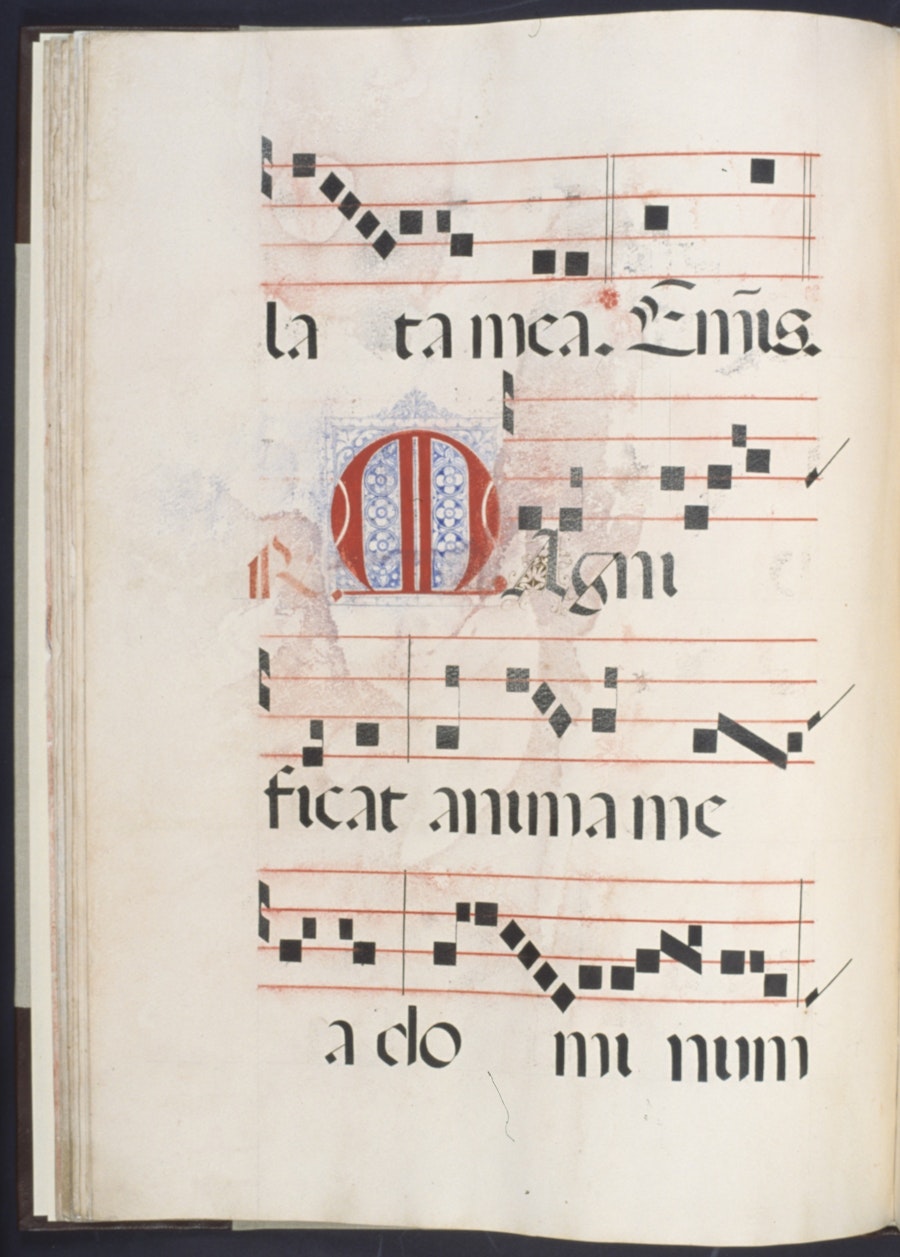 la ta mea. Em̄is.
R. MAgni
ficat anima me
a do mi num